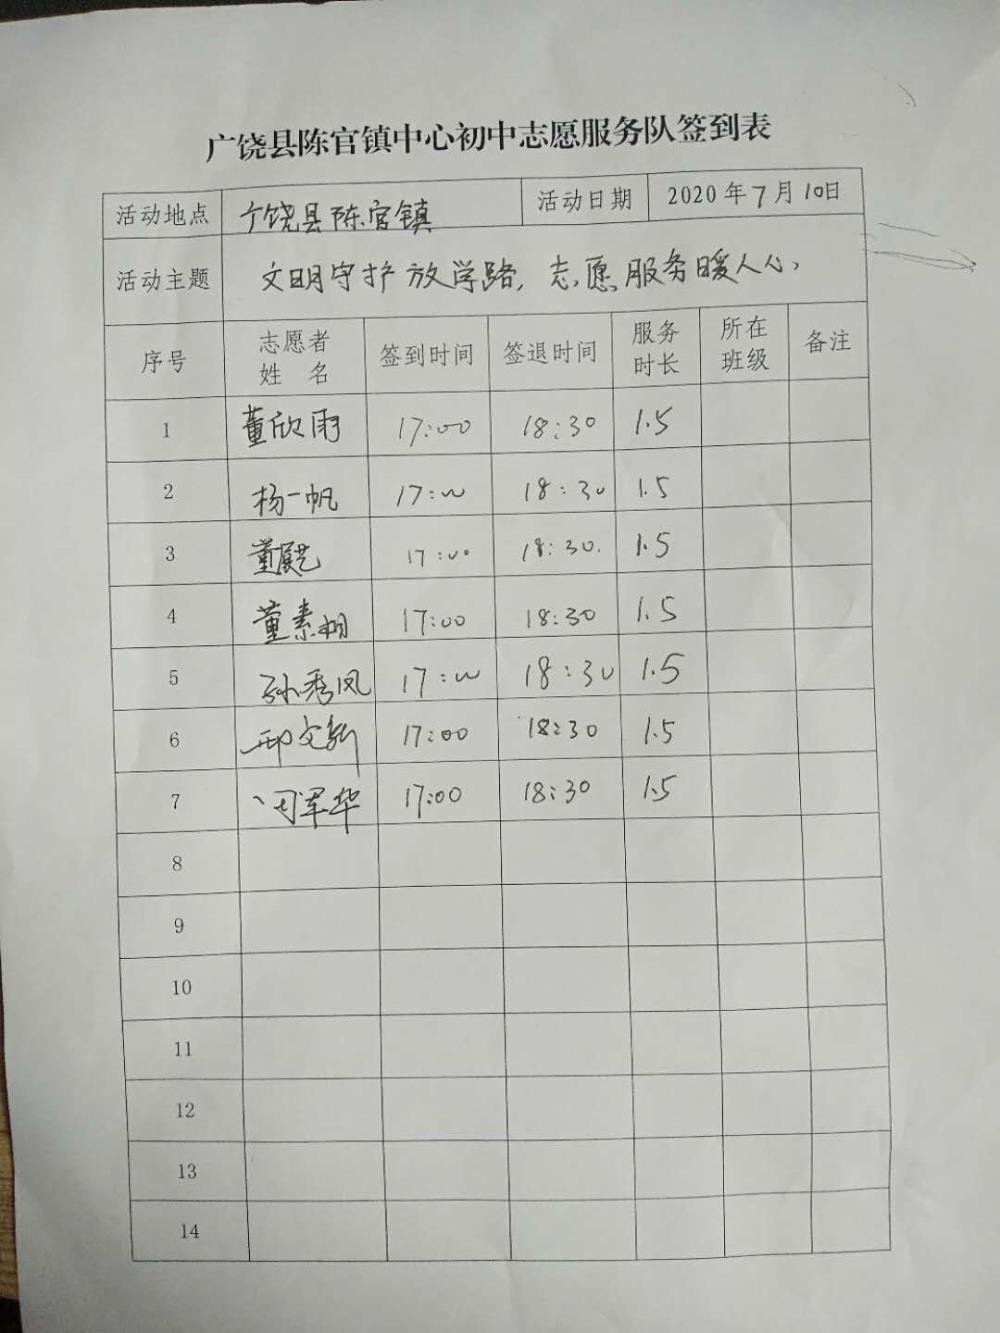 广饶县陈官镇中心初中志愿服务队签到表
活动地点 广饶县陈官镇 活动日期 2020年7月10日
活动主题 文明守护放学路,志愿服务暖人心、
序号 志愿者姓 名 签到时间 签退时间 服务时长 所在班级 备注
1 董欣雨 17:00 18:30 1.5
2 杨一帆 17:00 18:30 1.5
3 董 17:00 18:30. 1.5
4 董素娟 17:00 18:30 1.5
5 孙秀凤 17:00 18:30 1.5
6 邢文新 17:00 18:30 1.5
7 周军华 17:00 18:30 1.5
8
9
10
11
12
13
14